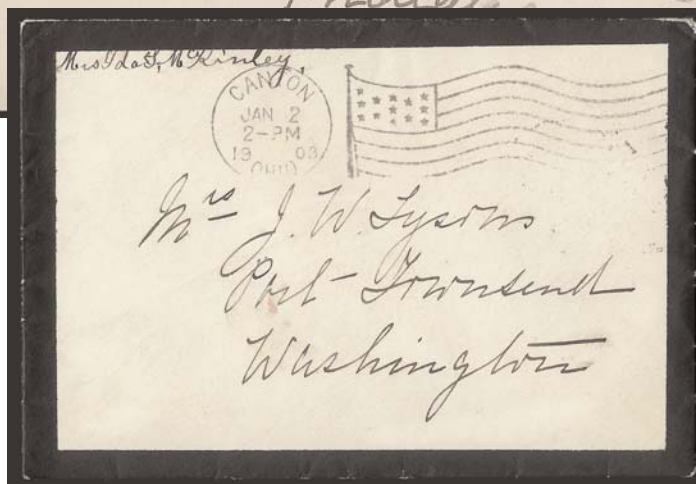 Mrs Ida S, McKinley,
CANTON
JAN 2
2-PM
19 03
OHIO
Mrs J. W. Lysons
Port Townsend
Washington